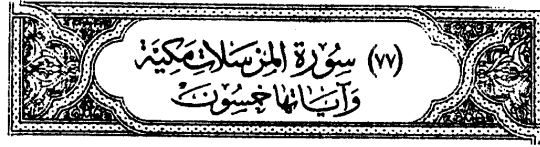 (٧٧) سُورَةُ المُرْسَلَاتِ مَكِيَّة
وَآيَاتُهَا خَمْسُونَ